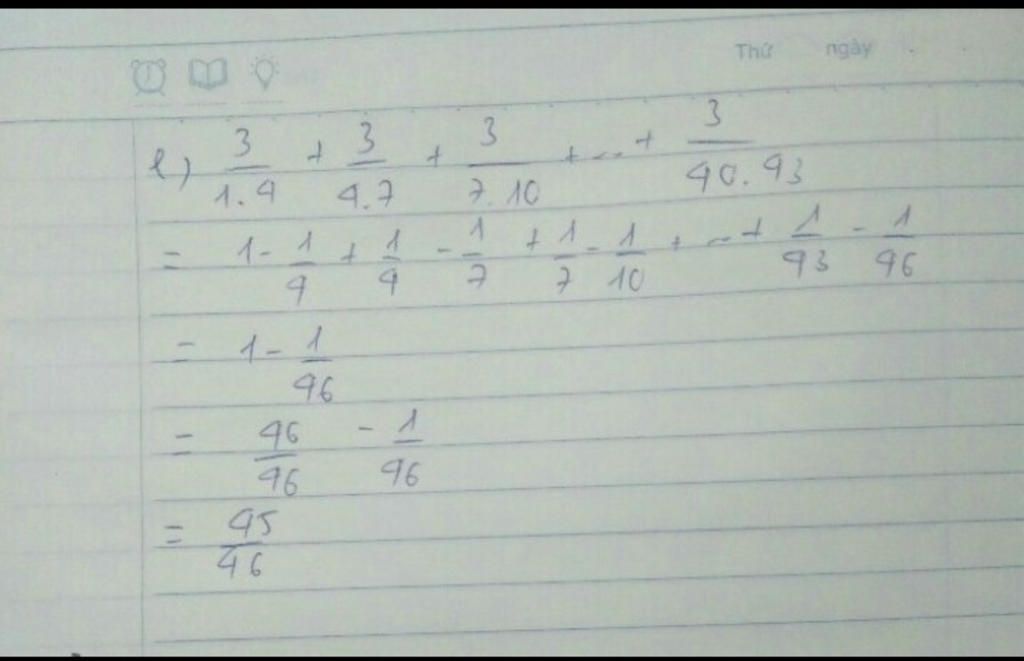 Thứ ngày
e) 3/1.4 + 3/4.7 + 3/7.10 + ... + 3/40.43
= 1 - 1/4 + 1/4 - 1/7 + 1/7 - 1/10 + ... + 1/43 - 1/46
= 1 - 1/46
= 46/46 - 1/46
= 45/46